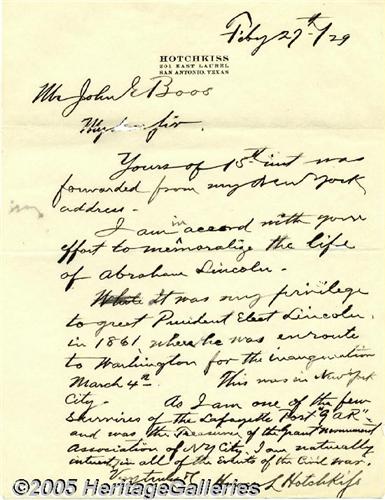 Feby 27th/29
HOTCHKISS
201 EAST LAUREL
SAN ANTONIO, TEXAS
Mr John E Boos
My dear sir,
Yours of 15th inst was
forwarded from my New York
address.
I am in accord with your
effort to memoralize the life
of Abraham Lincoln.
It was my privilege
to greet President Elect Lincoln
in 1861 where he was enroute
to Washington for the inauguration
March 4th. This was in New York
City. As I am one of the few
survivors of the Lafayette Post "GAR"
and was the Treasurer of the Grant Monument
Association of N.Y. City. I am naturally
interested in all of the Events of the Civil War.
L Hotchkiss
©2005 HeritageGalleries